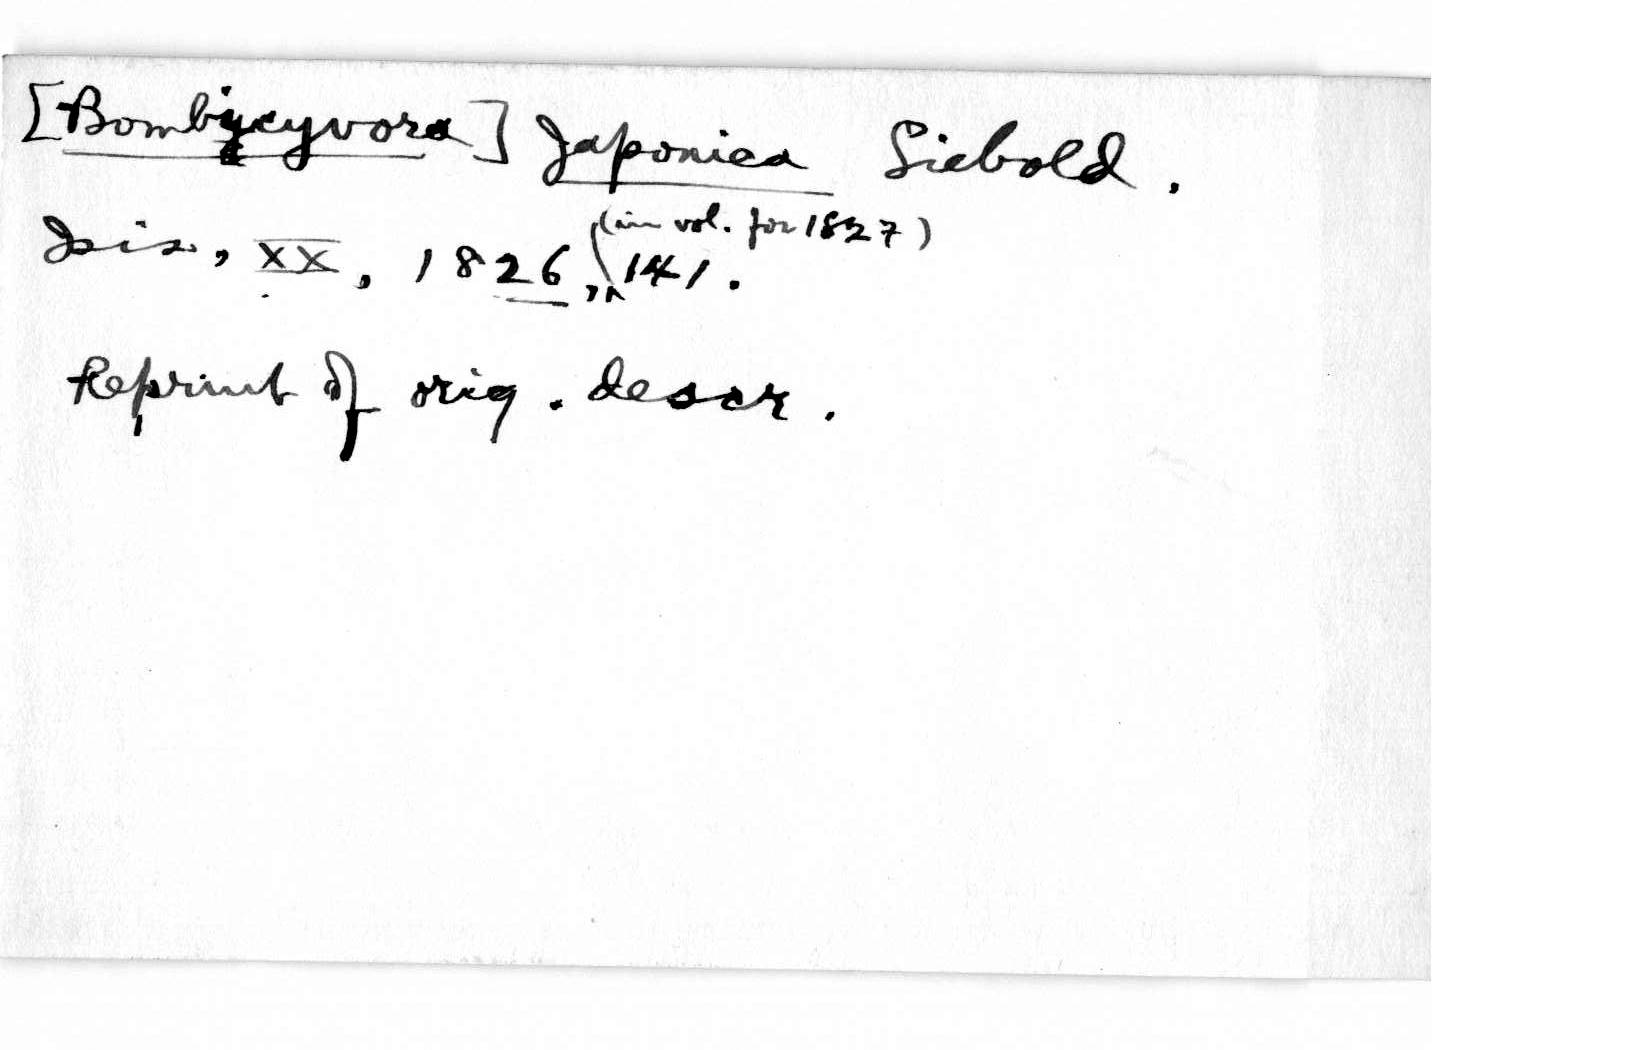 [Bombycyvora] Japonica Siebold.
Isis, XX, 1826, (in vol. for 1827) 141.
Reprint of orig. descr.